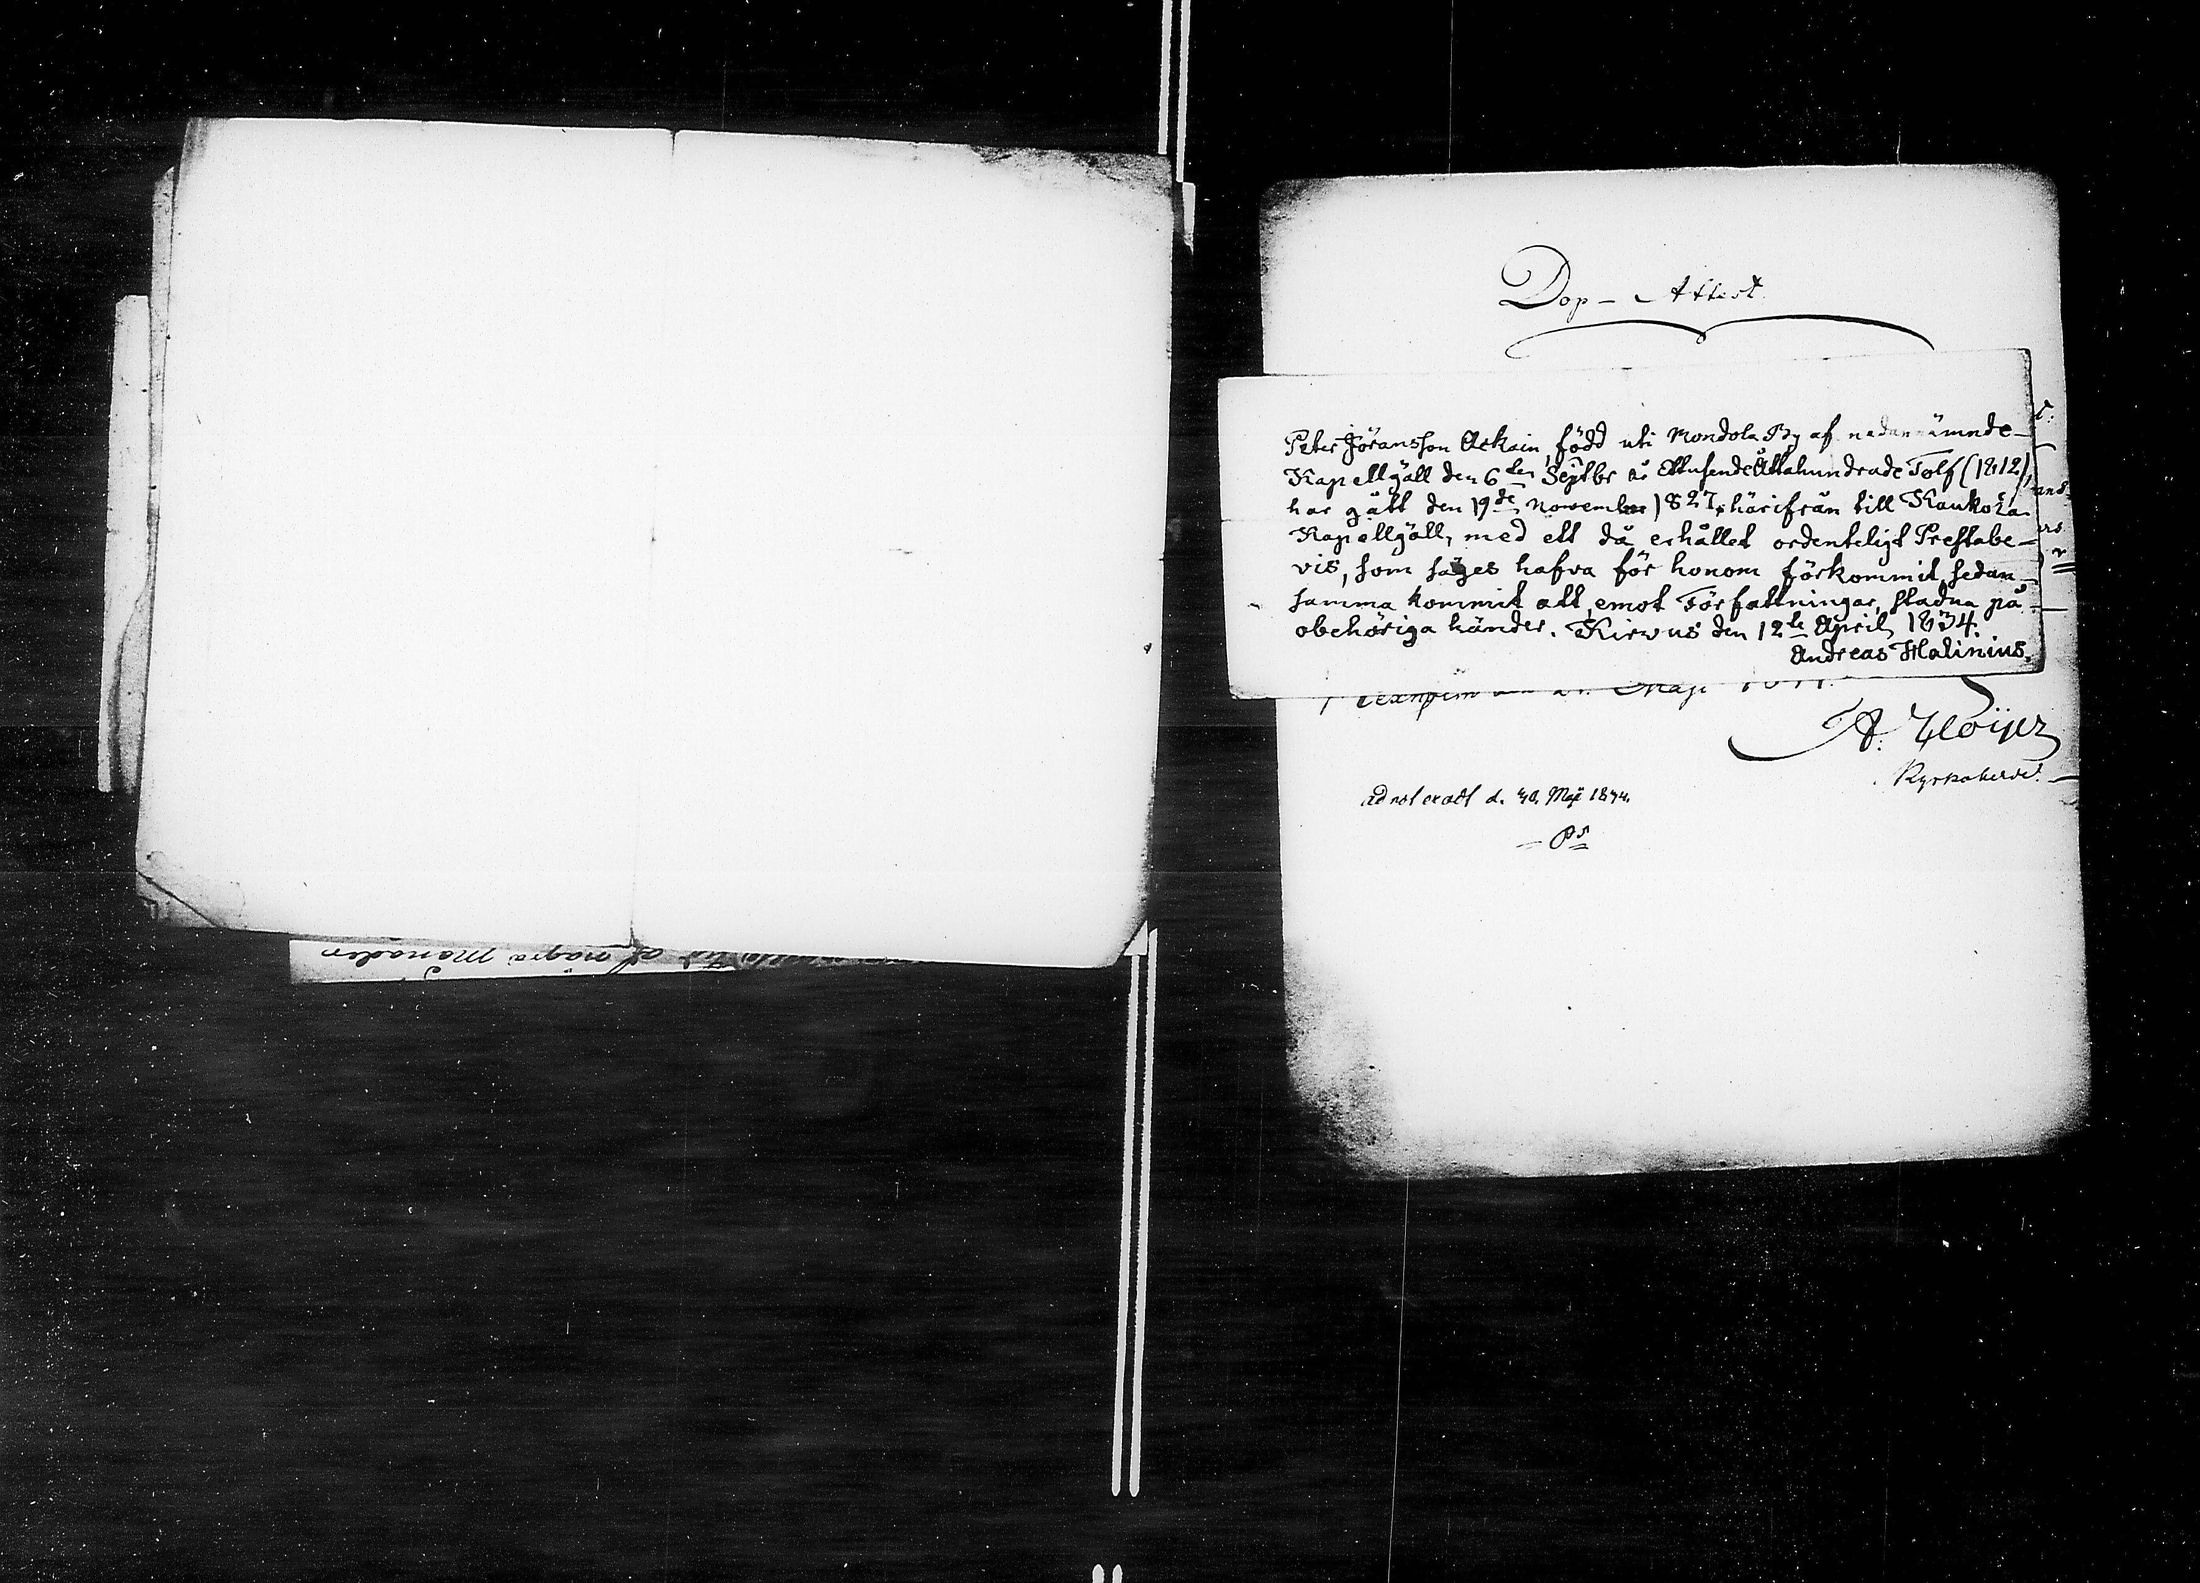 Dop - Attest
Peter Jöransson Askain, född uti Mondola By af nedannämnde
Kapellgäll den 6ten Septbr år EttusendeÅttahundrade Tolf (1812),
har gått den 19de November 1827, härifrån till Kaukola
Kapellgäll, med ett då erhållet ordenteligt Prestabe-
vis, som säges hafva för honom förkommit, sedan
samma kommit att, emot Författningar, stadna på
obehöriga händer. Kirwus den 12te April 1834.
Andreas Halinius.
Maji
A: Höijer
Kyrkoherde.
ad not eradt d. 30. Maji 1834.
några Månader